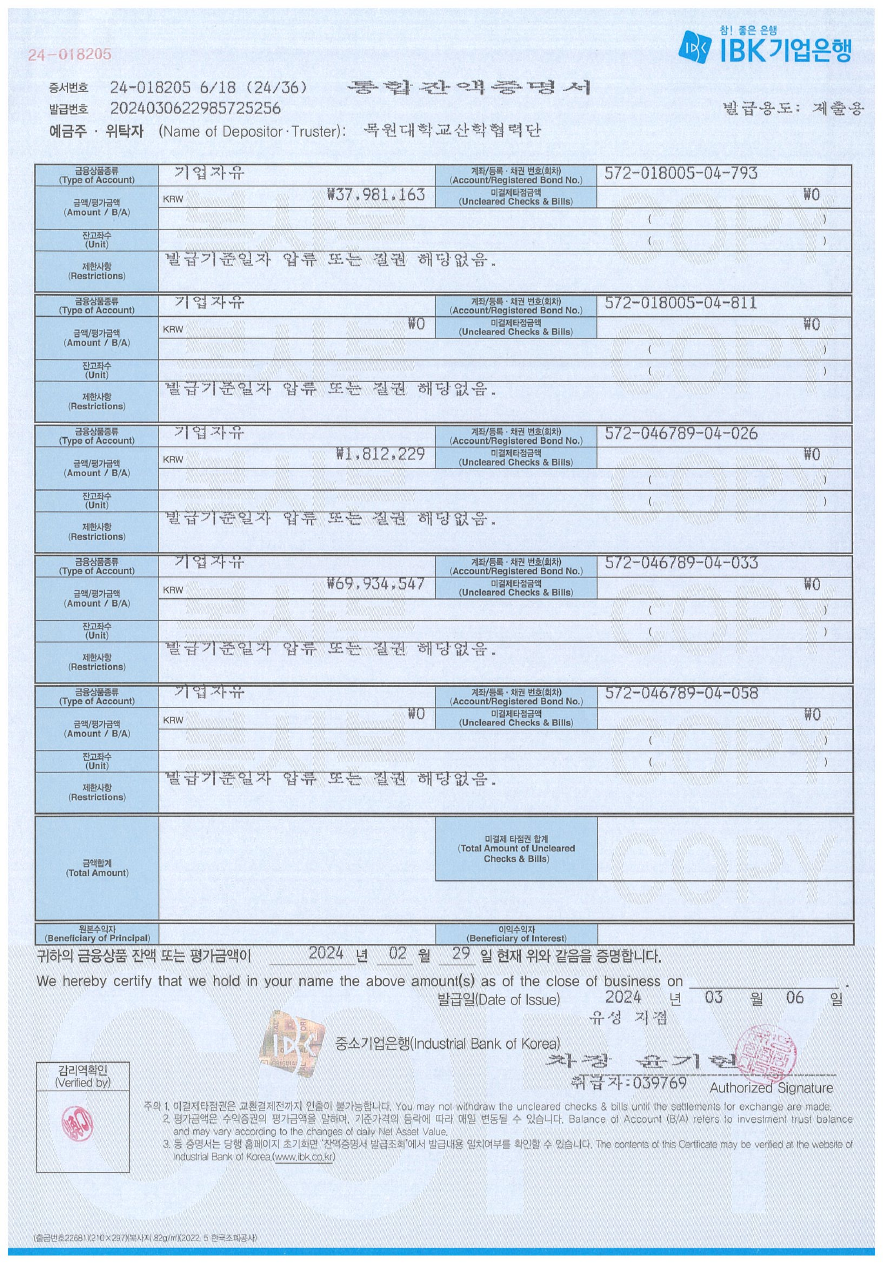 24-018205
참! 좋은 은행
IBK 기업은행
증서번호 24-018205 6/18 (24/36) 통합잔액증명서
발급번호 2024030622985725256 발급용도: 제출용
예금주 · 위탁자 (Name of Depositor·Truster): 목원대학교산학협력단
금융상품종류 (Type of Account) 기업자유 계좌/등록·채권 번호(회차) (Account/Registered Bond No.) 572-018005-04-793
금액/평가금액 (Amount / B/A) KRW ₩37,981,163 미결제타점금액 (Uncleared Checks & Bills) ₩0
( )
잔고좌수 (Unit) ( )
제한사항 (Restrictions) 발급기준일자 압류 또는 질권 해당없음.
금융상품종류 (Type of Account) 기업자유 계좌/등록·채권 번호(회차) (Account/Registered Bond No.) 572-018005-04-811
금액/평가금액 (Amount / B/A) KRW ₩0 미결제타점금액 (Uncleared Checks & Bills) ₩0
( )
잔고좌수 (Unit) ( )
제한사항 (Restrictions) 발급기준일자 압류 또는 질권 해당없음.
금융상품종류 (Type of Account) 기업자유 계좌/등록·채권 번호(회차) (Account/Registered Bond No.) 572-046789-04-026
금액/평가금액 (Amount / B/A) KRW ₩1,812,229 미결제타점금액 (Uncleared Checks & Bills) ₩0
( )
잔고좌수 (Unit) ( )
제한사항 (Restrictions) 발급기준일자 압류 또는 질권 해당없음.
금융상품종류 (Type of Account) 기업자유 계좌/등록·채권 번호(회차) (Account/Registered Bond No.) 572-046789-04-033
금액/평가금액 (Amount / B/A) KRW ₩69,934,547 미결제타점금액 (Uncleared Checks & Bills) ₩0
( )
잔고좌수 (Unit) ( )
제한사항 (Restrictions) 발급기준일자 압류 또는 질권 해당없음.
금융상품종류 (Type of Account) 기업자유 계좌/등록·채권 번호(회차) (Account/Registered Bond No.) 572-046789-04-058
금액/평가금액 (Amount / B/A) KRW ₩0 미결제타점금액 (Uncleared Checks & Bills) ₩0
( )
잔고좌수 (Unit) ( )
제한사항 (Restrictions) 발급기준일자 압류 또는 질권 해당없음.
금액합계 (Total Amount) 미결제 타점권 합계 (Total Amount of Uncleared Checks & Bills)
COPY
원본수익자 (Beneficiary of Principal) 이익수익자 (Beneficiary of Interest)
귀하의 금융상품 잔액 또는 평가금액이 2024 년 02 월 29 일 현재 위와 같음을 증명합니다.
We hereby certify that we hold in your name the above amount(s) as of the close of business on .
발급일(Date of Issue) 2024 년 03 월 06 일
유성 지점
중소기업은행(Industrial Bank of Korea) 차장 윤기현
취급자:039769 Authorized Signature
감리역확인
(Verified by)
주의 1. 미결제타점권은 교환결제전까지 인출이 불가능합니다. You may not withdraw the uncleared checks & bills until the settlements for exchange are made.
2. 평가금액은 수익증권의 평가금액을 말하며, 기준가격의 등락에 따라 매일 변동될 수 있습니다. Balance of Account (B/A) refers to investment trust balance
and may vary according to the changes of daily Net Asset Value.
3. 동 증명서는 당행 홈페이지 초기화면 "잔액증명서 발급조회"에서 발급내용 일치여부를 확인할 수 있습니다. The contents of this Certificate may be verified at the website of
Industrial Bank of Korea.(www.ibk.co.kr)
(출금번호22681)(210×297)(복사지 82g/m)(2022. 5 한국조폐공사)